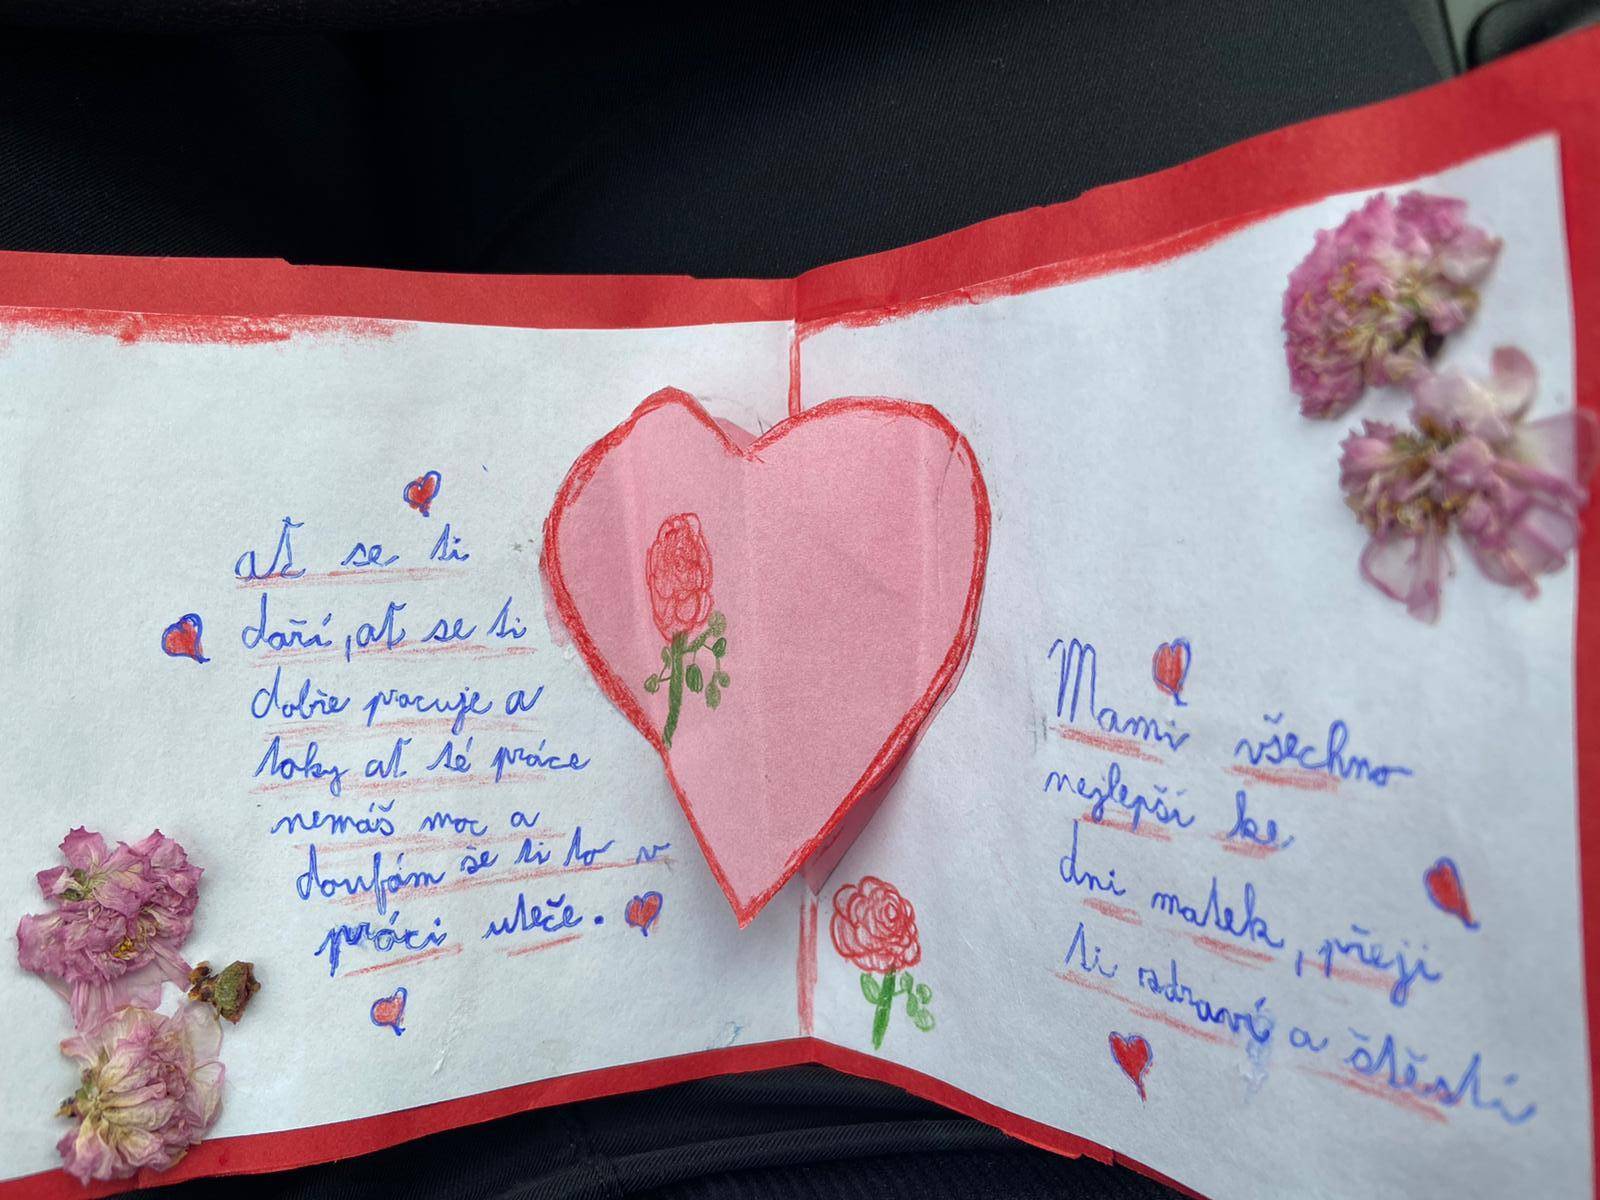 ať se ti
daří, ať se ti
dobře pracuje a
taky ať té práce
nemáš moc a
doufám še ti to v
práci uteče.
Mami všechno
nejlepší ke
dni matek, přeji
ti zdraví a štěstí